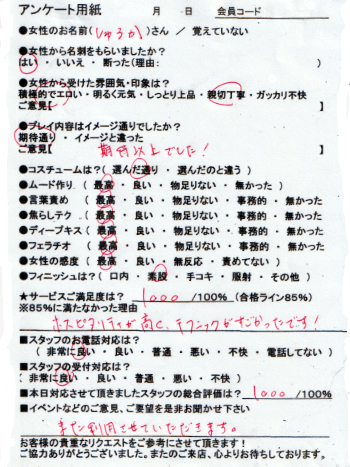 アンケート用紙 月 日 会員コード
●女性のお名前( しゅうか )さん / 覚えていない
●女性から名刺をもらいましたか?
はい ・ いいえ ・ 断った(理由: )
●女性から受けた雰囲気・印象は?
積極的でエロい ・ 明るく元気 ・ しっとり上品 ・ 親切丁寧 ・ ガッカリ不快
ご意見【 】
●プレイ内容はイメージ通りでしたか?
期待通り ・ イメージと違った
ご意見【 期待以上でした! 】
●コスチュームは?( 選んだ通り ・ 選んだのと違う )
●ムード作り.( 最高 ・ 良い ・ 物足りない ・ 無かった )
●言葉責め ( 最高 ・ 良い ・ 物足りない ・ 事務的 ・ 無かった )
●焦らしテク .( 最高 ・ 良い ・ 物足りない ・ 事務的 ・ 無かった )
●ディープキス ( 最高 ・ 良い ・ 物足りない ・ 事務的 ・ 無かった )
●フェラチオ ( 最高 ・ 良い ・ 物足りない ・ 事務的 ・ 無かった )
●女性の感度 ( 最高 ・ 良い ・ 無反応 ・ 責めてない )
●フィニッシュは?( 口内 ・ 素股 ・ 手コキ ・ 服射 ・ その他 )
★サービスご満足度は? 1000 /100% (合格ライン85%)
※85%に満たなかった理由
ホスピタリティが高く、テクニックがすごかったです!
■スタッフのお電話対応は?
( 非常に良い ・ 良い ・ 普通 ・ 悪い ・ 不快 ・ 電話してない )
■スタッフの受付対応は?
( 非常に良い ・ 良い ・ 普通 ・ 悪い ・ 不快 )
■本日対応させて頂きましたスタッフの総合評価は? 1000 /100%
■イベントなどのご意見、ご要望を是非お聞かせ下さい
また利用させていただきます。
お客様の貴重なリクエストをご参考にさせて頂きます!
ご協力ありがとうございました。またのご来店、心よりお待ちしております。